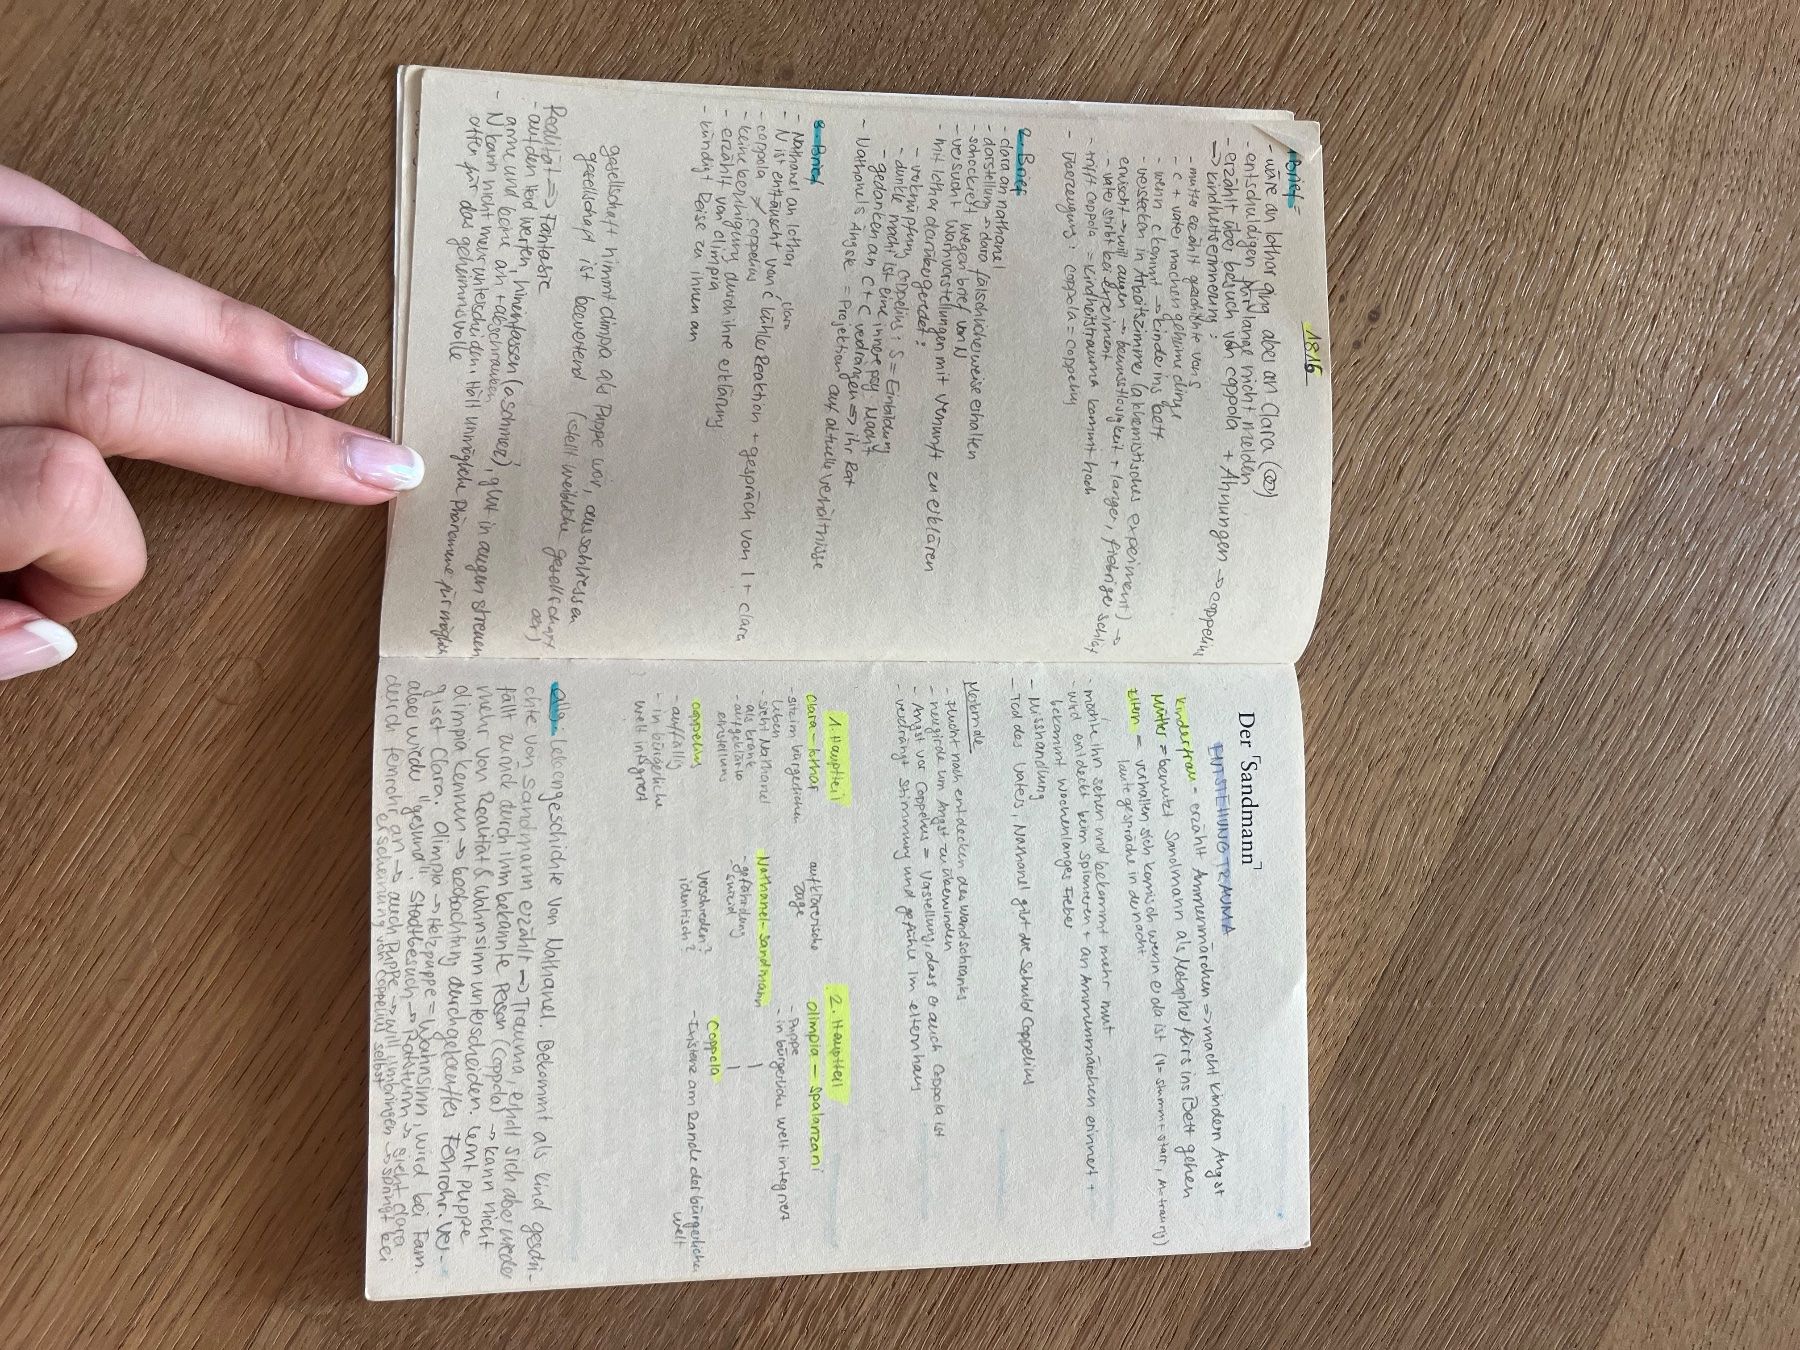 1816
1. Brief =
- wäre an lothar ging aber an Clara
- entschuldigen für lange nicht melden
- erzählt über besuch von coppola + Ahnungen → coppelius
⇒ kindheitserinnerung:
- mutter erzählt geschichte von S
- c + vater machen geheime dinge
- wenn c kommt → kinder ins bett
- verstecken in Arbeitszimmer (alchemistisches experiment) →
erwischt → will augen → bewusstlosigkeit + langer, fiebriger schlaf
- vater stirbt bei experiment
- trifft coppola = kindheitstrauma kommt hoch
- überzeugung: coppola = coppelius
2. Brief
- clara an nathanel
- darstellung → clara fälschlicherweise erhalten
- schockiert wegen brief von N
- versucht wahnvorstellungen mit vernunft zu erklären
- mit lothar darüber geredet:
- verknüpfung coppelius: S = Einbildung
- dunkle macht ist eine innere psy. Macht
- gedanken an C + C verdrängen ⇒ Ihr Rat
- Nathanels Ängste = Projektion auf aktuelle verhältnisse
3. Brief
- Nathanel an lothar
clara
- N ist enttäuscht von c kühler Reaktion + gespräch von l + clara
- coppola ≠ coppelius
- keine beruhigung durch ihre erklärung
- erzählt von olimpia
- kündigt Reise zu ihnen an
gesellschaft nimmt olimpia als Puppe wahr, ausschliessen
gesellschaft ist bewertend (stell weibliche gesellschaft
dar)
Realität ⇒ Fantasie
- auf den Hof werfen, hineinfassen (aschmeer), glut in augen streuen
arme und beine an + abschrauben
- N kann nicht mehr unterscheiden. Hält unmögliche Phänomene für möglich
offen für das geheimnisvolle
Der 「Sandmann」
ENTSTEHUNG TRAUMA
Kinderfrau = erzählt Ammenmärchen ⇒ macht kindern Angst
Mutter = benutzt Sandmann als Metapher fürs ins Bett gehen
Eltern = verhalten sich komisch wenn er da ist (V = stumm + starr, M = traurig)
laute gespräche in der nacht
- möchte ihn sehen und bekommt mehr mut
- wird entdeckt beim spionieren + an Ammenmärchen erinnert +
bekommt wochenlanges Fieber
- Misshandlung
- Tod des Vaters, Nathanel gibt die Schuld Coppelius
Merkmale
- Flucht nach entdecken des wandschranks
- neugierde um Angst zu überwinden
- Angst vor Coppelius = Vorstellung, dass er auch Coppola ist
- verdrängt Stimmung und gefühle im elternhaus
1. Hauptteil
2. Hauptteil
clara - lothar
aufklärerische
züge
olimpia - spalanzani
- sitz im bürgerlichen
Leben
- sieht Nathanel
als krank
- aufgeklärte
einstellung
- Puppe
- in bürgerliche welt integriert
Nathanel - sandmann
- gefährdung
suizid
coppelius
- auffällig
- in bürgerliche
welt integriert
Verschieden?
identisch?
Coppola
- Existenz am Rande der bürgerlichen
welt
Allg. Leidengeschichte von Nathanel. Bekommt als kind geschi-
chte von Sandmann erzählt → Trauma, erholt sich aber wieder
fällt zurück durch ihm bekannte Person (Coppola) → kann nicht
mehr von Realität & Wahnsinn unterscheiden. lernt puppe
olimpia kennen → beobachtung durchgekauftes Fernrohr. Ver-
gisst Clara. Olimpia → Holzpuppe = Wahnsinn, wird bei Fam.
aber wieder "gesund". Stadtbesuch → Ratsturm → sieht clara
durch fernrohr an → auch Puppe → will umbringen → springt bei
erscheinung von Coppelius selbst